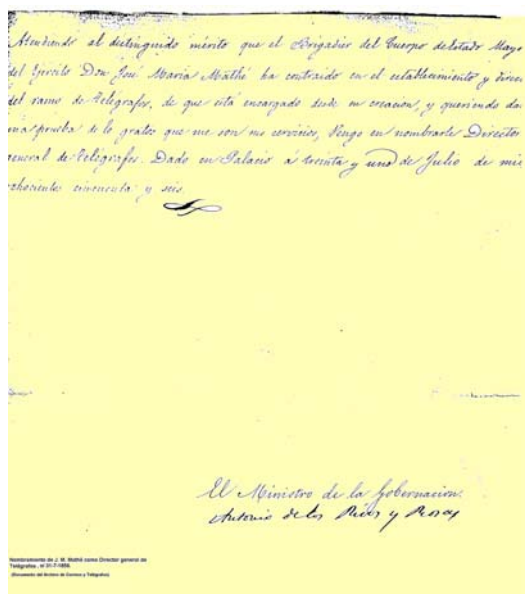 Atendiendo al distinguido mérito que el Brigadier del Cuerpo de Estado Mayo
del Ejercito Don José Maria Mathé ha contraido en el establecimiento y direc
del ramo de Telégrafos, de que está encargado desde su creacion, y queriendo da
una prueba de lo gratos que me son sus servicios, Vengo en nombrarle Director
general de Telégrafos. Dado en Palacio á treinta y uno de Julio de mil
ochocientos cincuenta y seis.
El Ministro de la Gobernacion.
Antonio de los Rios y Rosas
Nombramiento de J. M. Mathé como Director general de
Telégrafos, el 31-7-1856.
(Documento del Archivo de Correos y Telégrafos)